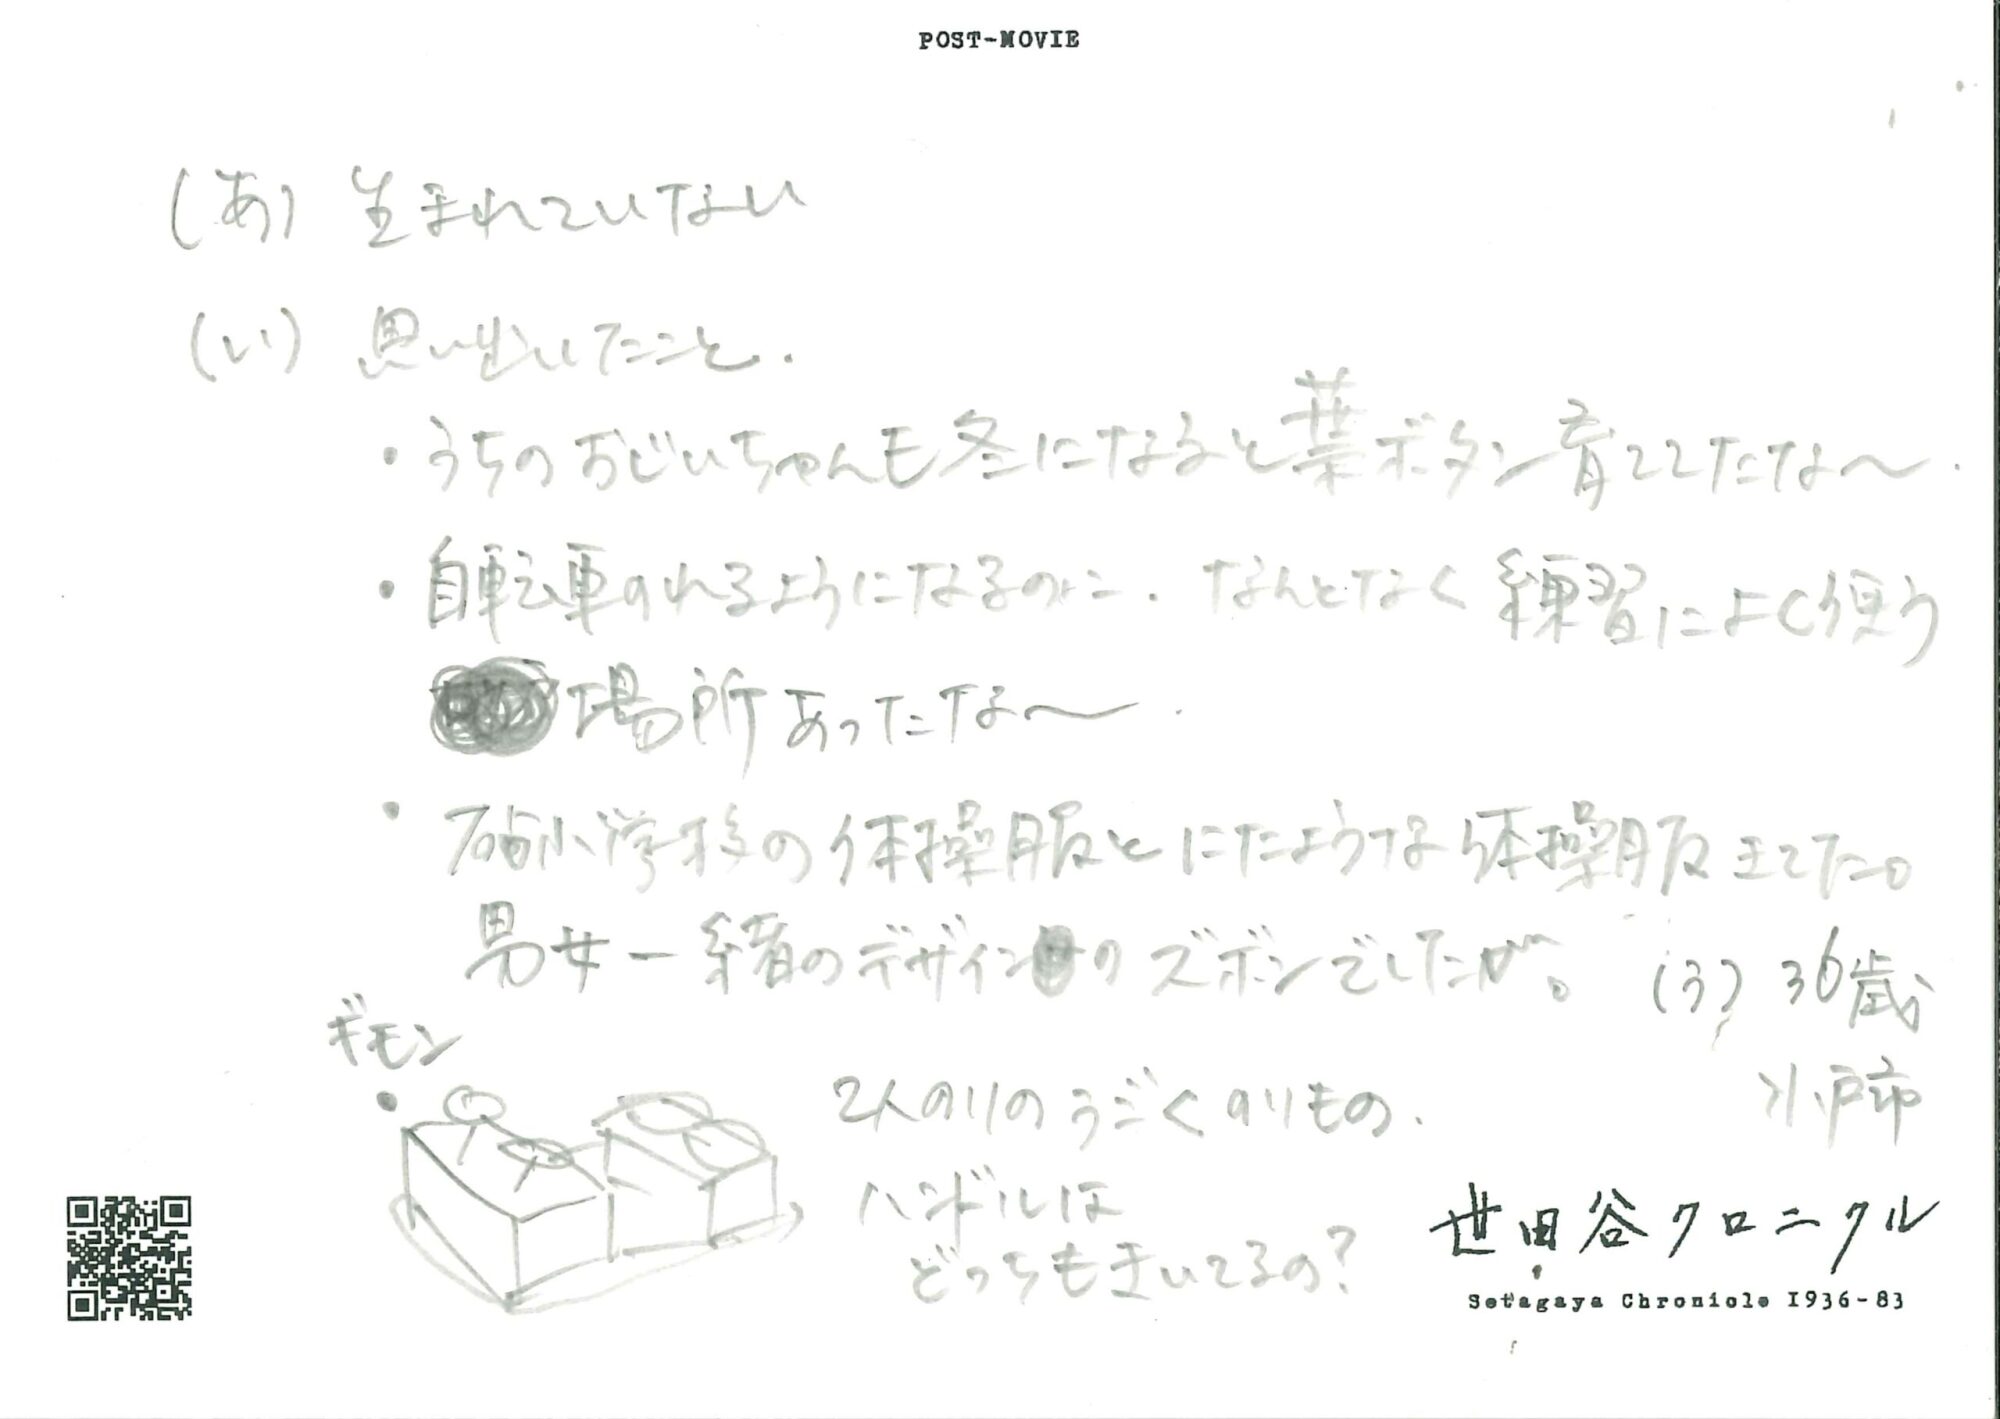 POST-MOVIE
(あ) 生まれていない
(い) 思い出したこと.
・うちのおじいちゃんも冬になると葉ボタン育ててたな〜.
・自転車のれるようになるのに. なんとなく練習によく使う
場所あったな〜.
・砧小学校の体操服とにたような体操服きてた。
男女一緒のデザインのズボンでしたが。
(う) 36歳
水戸市
ギモン
・2人のりのうごくのりもの.
ハンドルは
どっちもきいてるの?
世田谷クロニクル
Setagaya Chronicle 1936-83